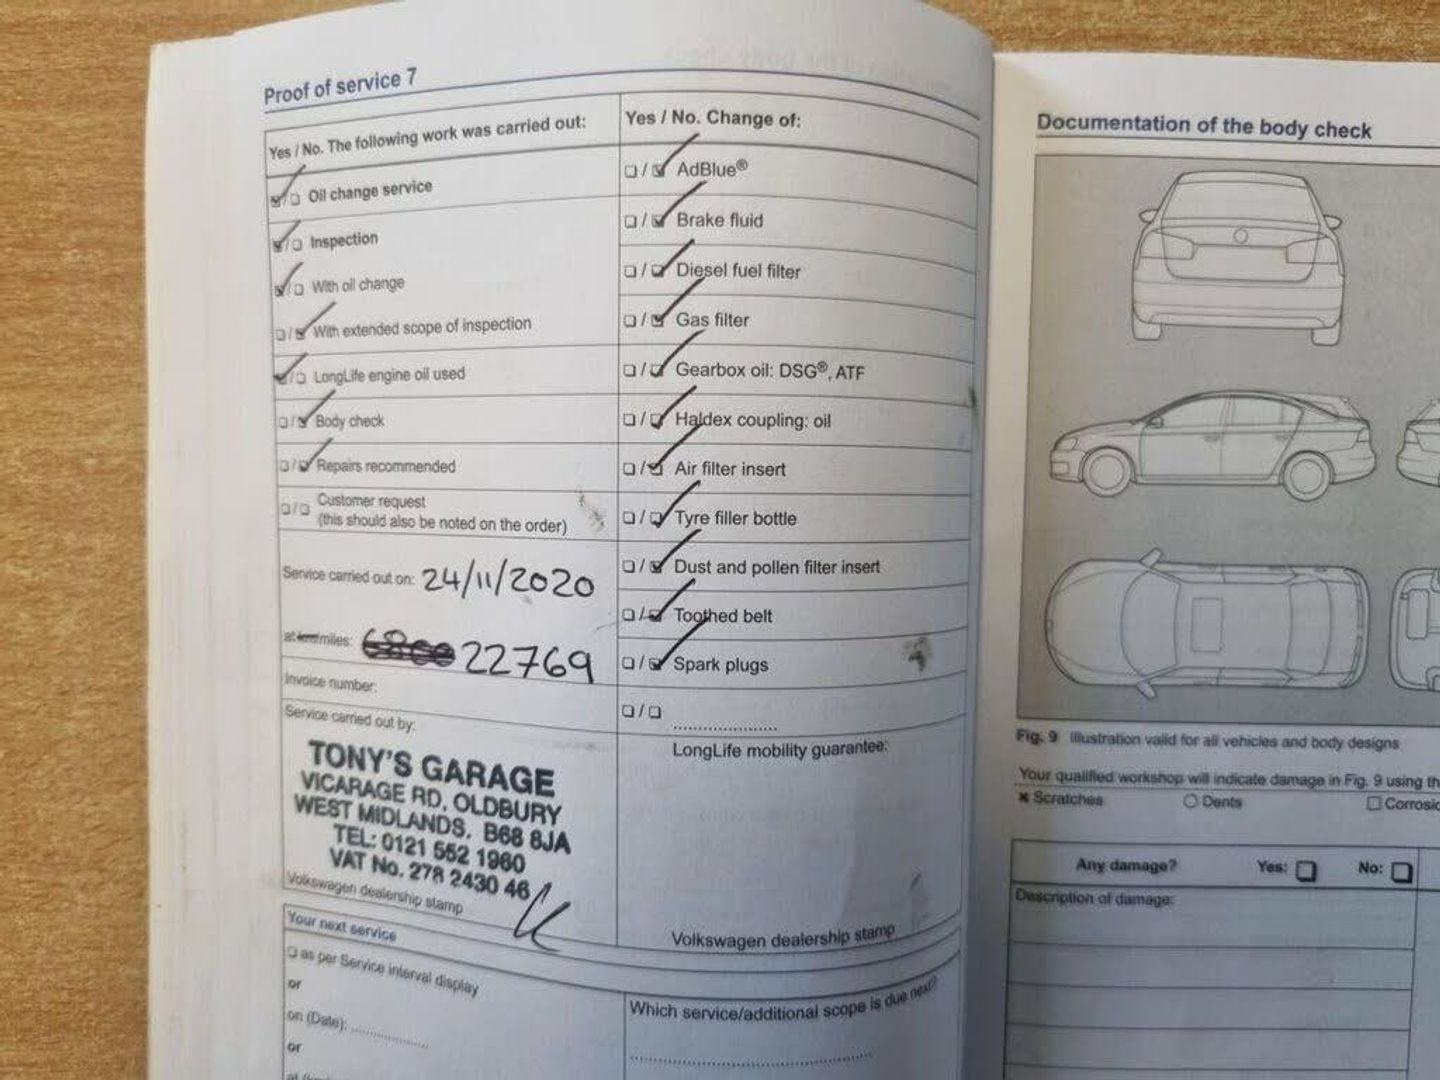 Proof of service 7
Yes / No. The following work was carried out:
Oil change service
Inspection
With oil change
With extended scope of inspection
LongLife engine oil used
Body check
Repairs recommended
Customer request
(this should also be noted on the order)
Service carried out on: 24/11/2020
at km/miles: 22769
Invoice number:
Service carried out by:
TONY'S GARAGE
VICARAGE RD, OLDBURY
WEST MIDLANDS. B68 8JA
TEL: 0121 552 1960
VAT No. 278 2430 46
Volkswagen dealership stamp
Your next service
as per Service interval display
or
on (Date):
or
Yes / No. Change of:
AdBlue®
Brake fluid
Diesel fuel filter
Gas filter
Gearbox oil: DSG®, ATF
Haldex coupling: oil
Air filter insert
Tyre filler bottle
Dust and pollen filter insert
Toothed belt
Spark plugs
LongLife mobility guarantee:
Volkswagen dealership stamp
Which service/additional scope is due next?
Documentation of the body check
Fig. 9 Illustration valid for all vehicles and body designs
Your qualified workshop will indicate damage in Fig. 9 using th
Scratches Dents Corrosic
Any damage? Yes: No:
Description of damage: